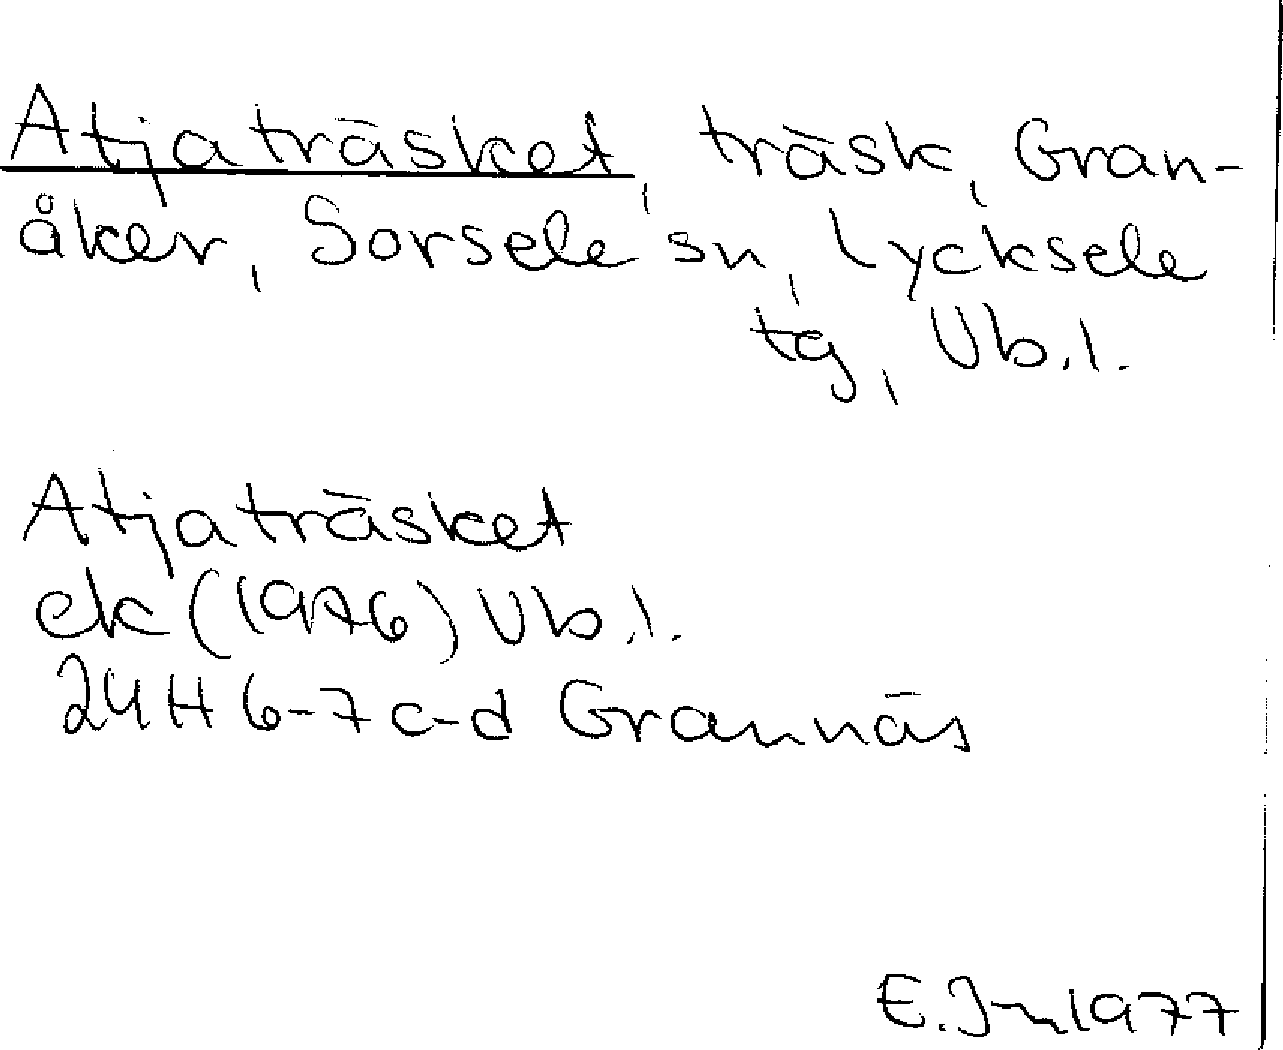 Atjaträsket, träsk, Gran-
åker, Sorsele sn, Lycksele
tg, Vb.l.
Atjaträsket
ek (1976) Vb.l.
24H 6-7 c-d Grannäs
E. 1977